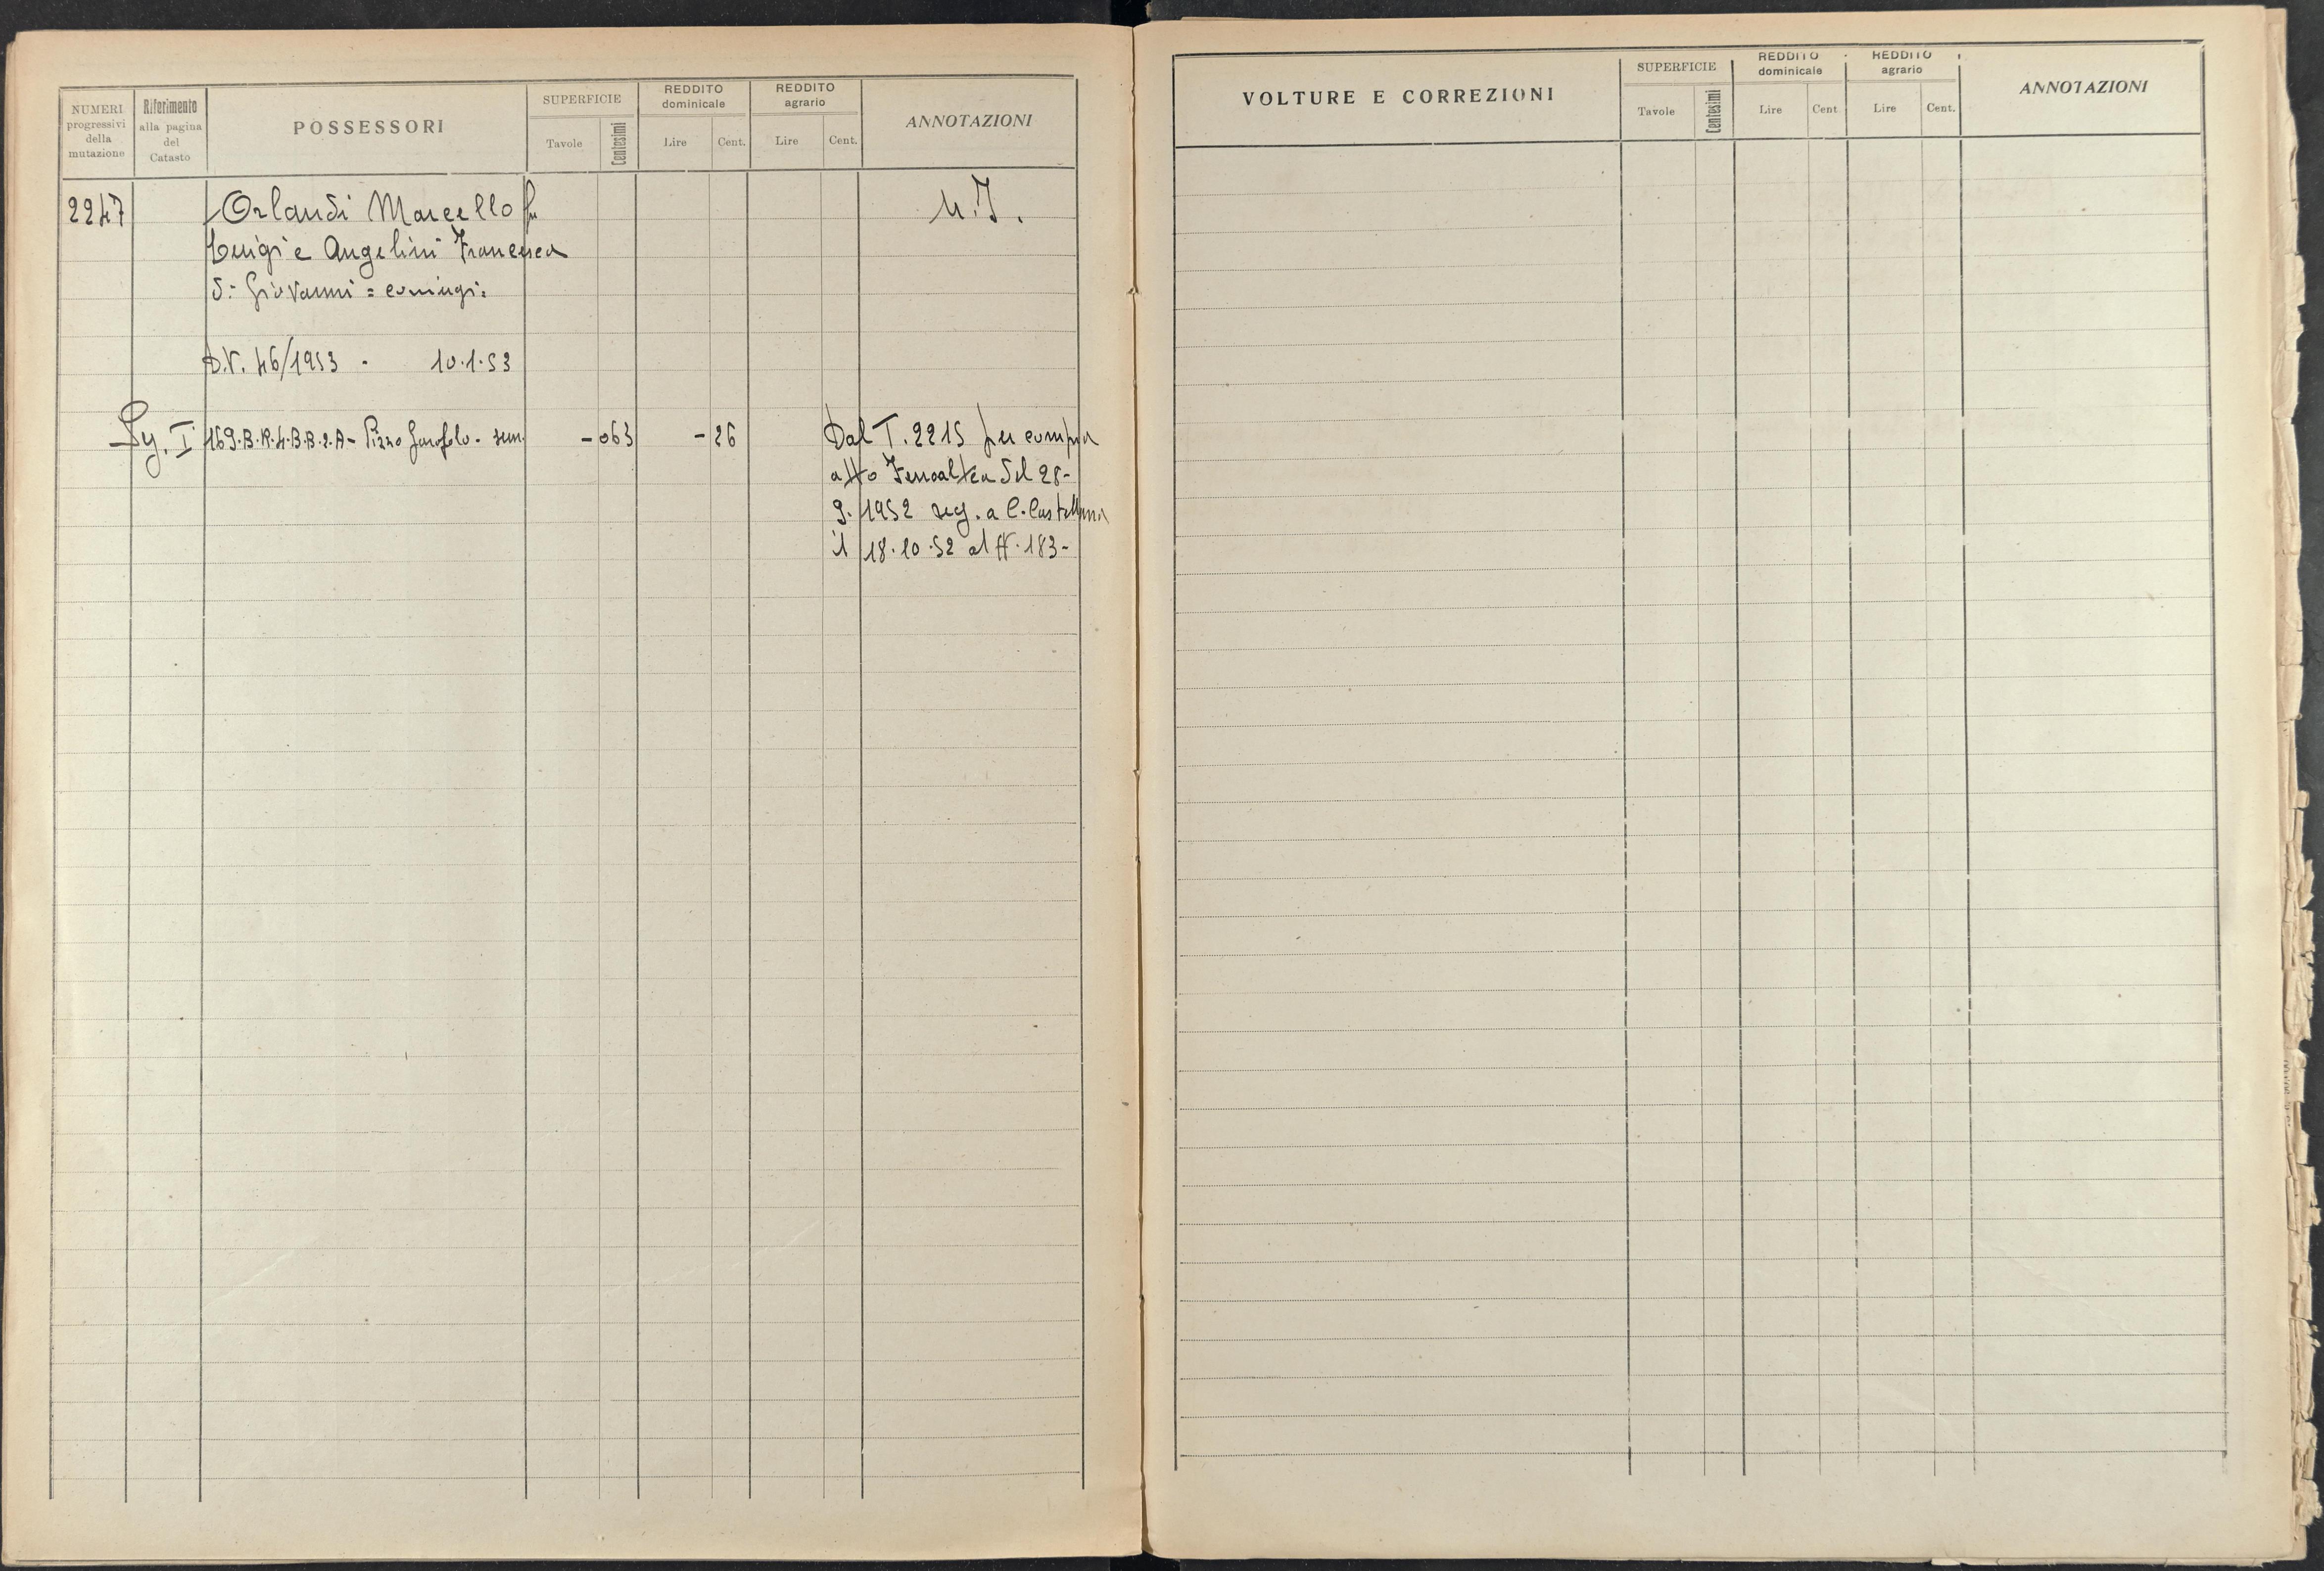 NUMERI progressivi della mutazione
Riferimento alla pagina del Catasto
POSSESSORI
SUPERFICIE
Tavole
Centesimi
REDDITO dominicale
Lire
Cent.
REDDITO agrario
Lire
Cent.
ANNOTAZIONI
2247
Orlandi Marcello fu
Luigi e Angelini Francesca
di Giovanni = coniugi =
D.V. 46/1953 - 10.1.53
I 169.B.R.4.B.B.2.A - Pizzo Garofolo - sem.
- 063
- 26
Dal T. 2215 per compra
atto Ferroaltea del 28-
9. 1952 reg. a C. Castellana
il 18.10.52 al N. 183-
VOLTURE E CORREZIONI
SUPERFICIE
Tavole
Centesimi
REDDITO dominicale
Lire
Cent
REDDITO agrario
Lire
Cent.
ANNOTAZIONI